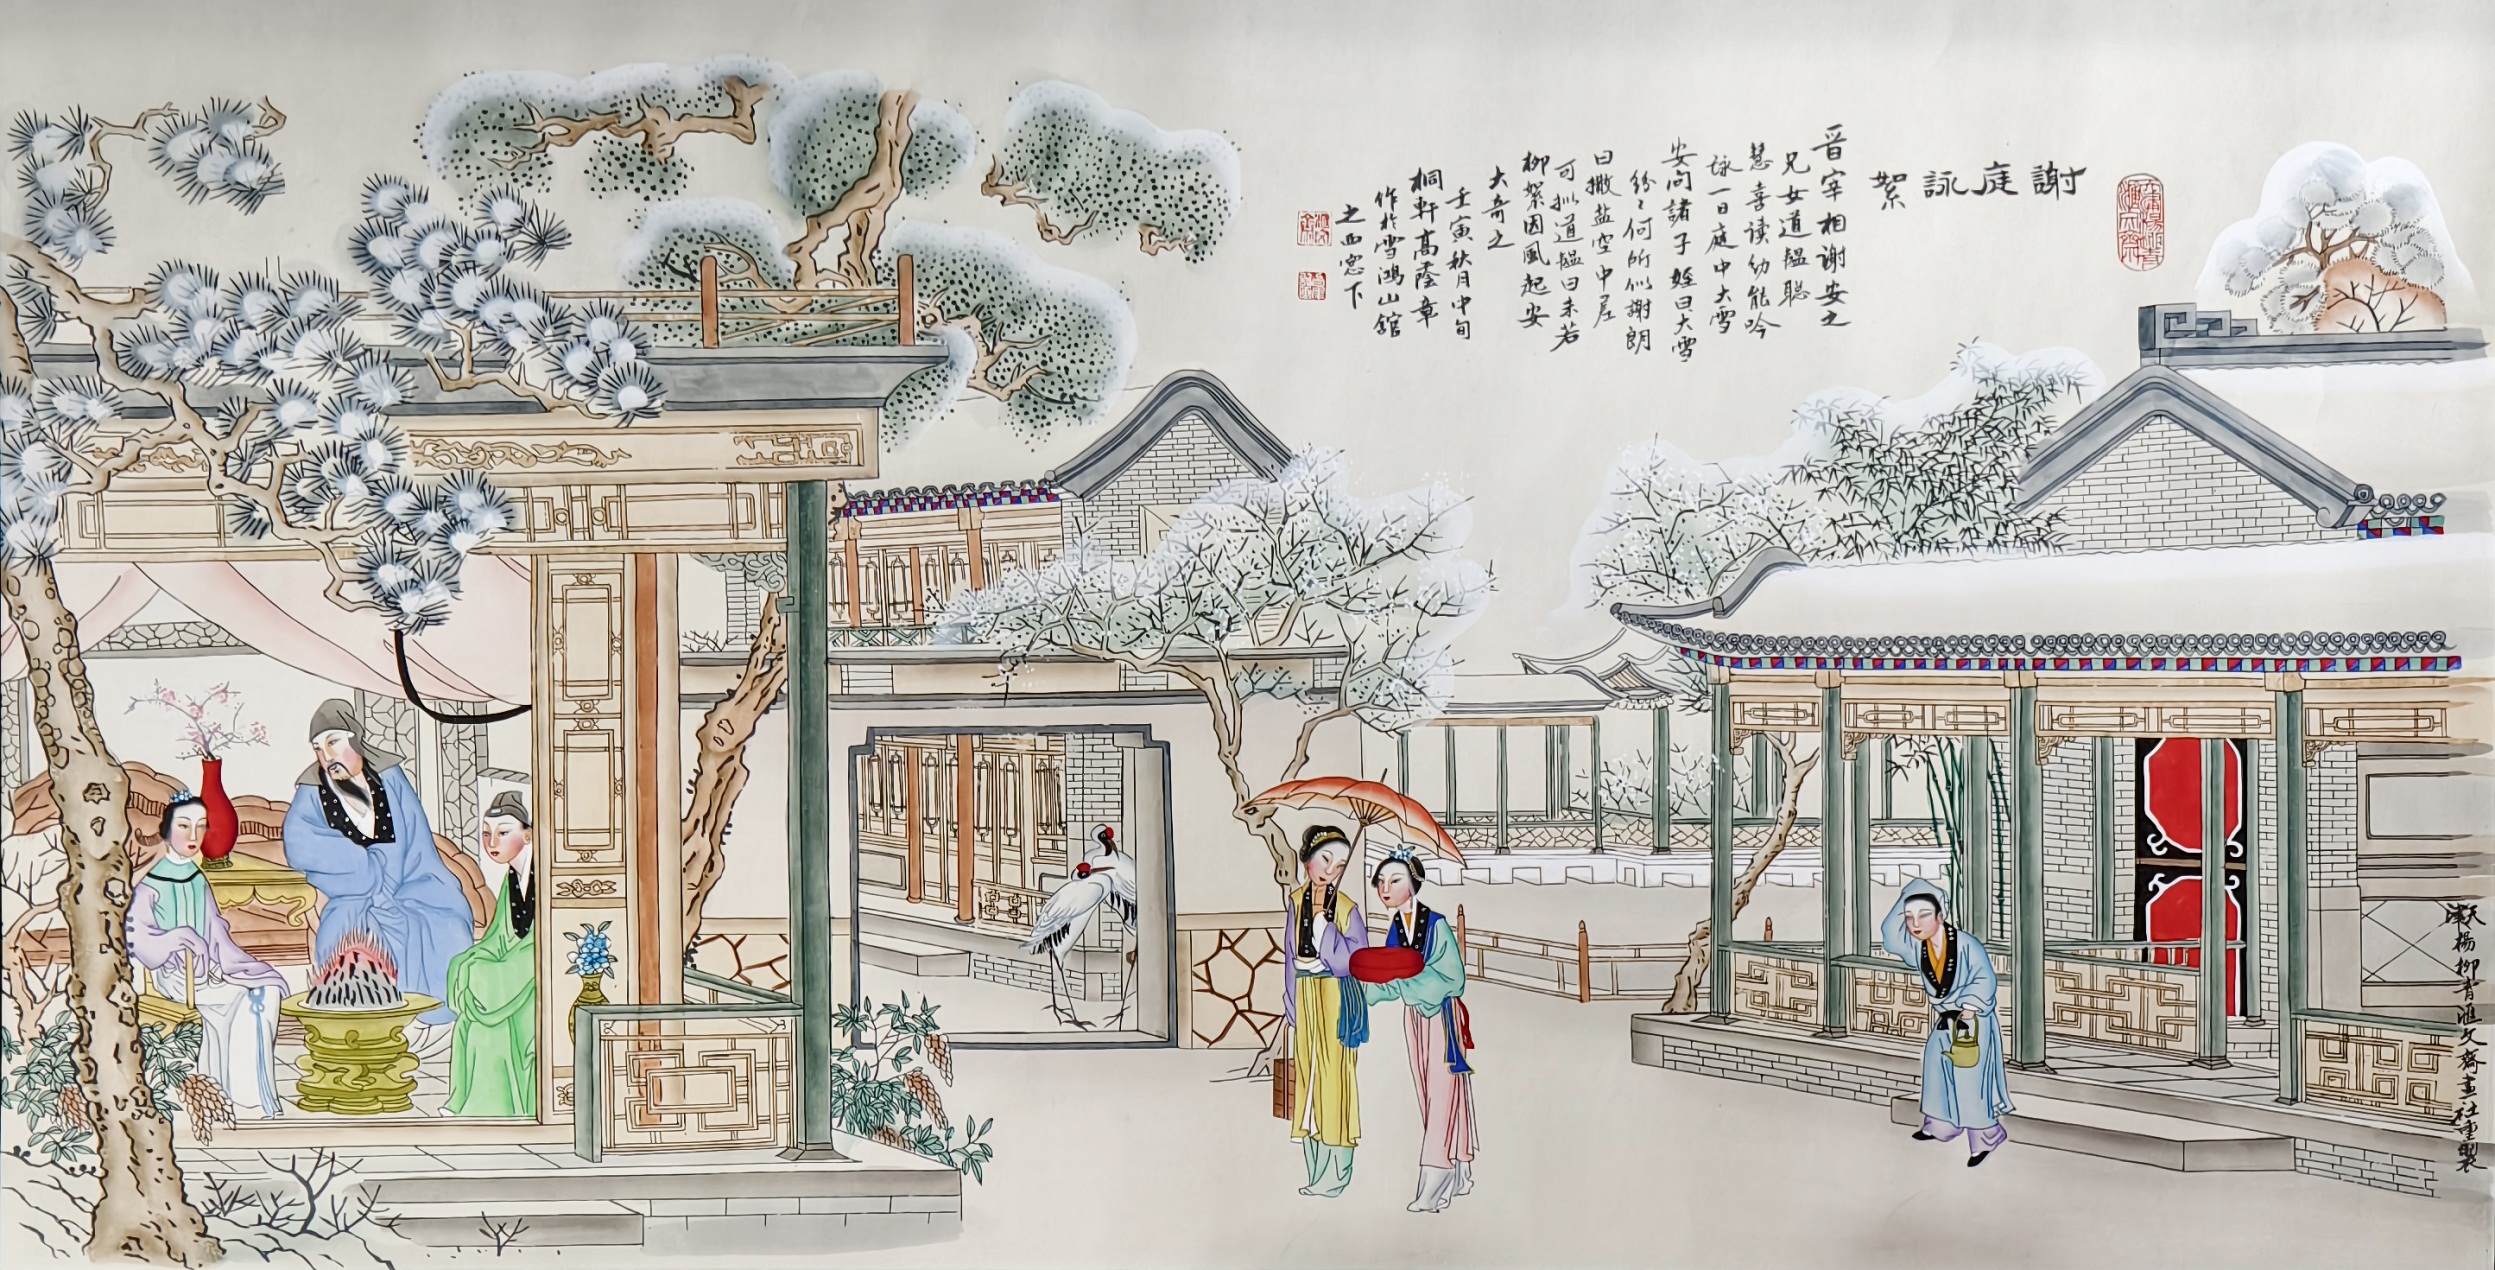 謝庭詠絮
晋宰相謝安之
兄女道韞聪
慧喜读幼能吟
詠一日庭中大雪
安问諸子姪曰大雪
纷〻何所似謝朗
曰撒盐空中差
可拟道韞曰未若
柳絮因風起安
大奇之
壬寅秋月中旬
桐軒高蔭章
作於雪鴻山舘
之西窓下
天津楊柳青滙文齋畫社重製